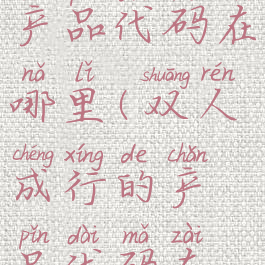 产品代码在
nǎ lǐ shuāng rén
哪里(双人
chéng xíng de chǎn
成行的产
pǐn dài mǎ zài
品代码在